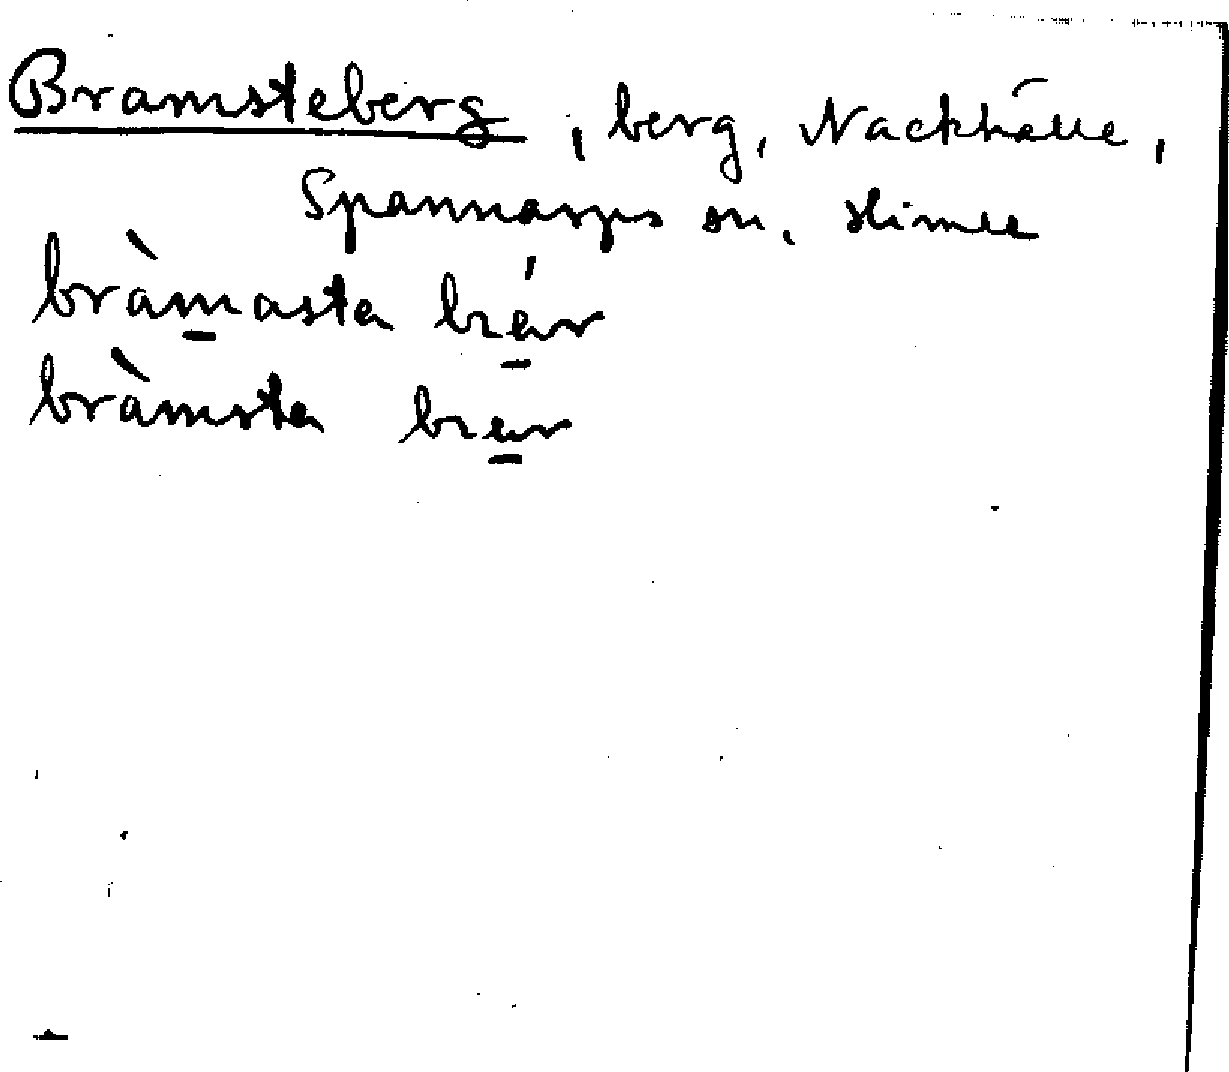 Bramsteberg, berg, Nackhälle,
Spannarps sn, Himle
bràmasta
bràmsta